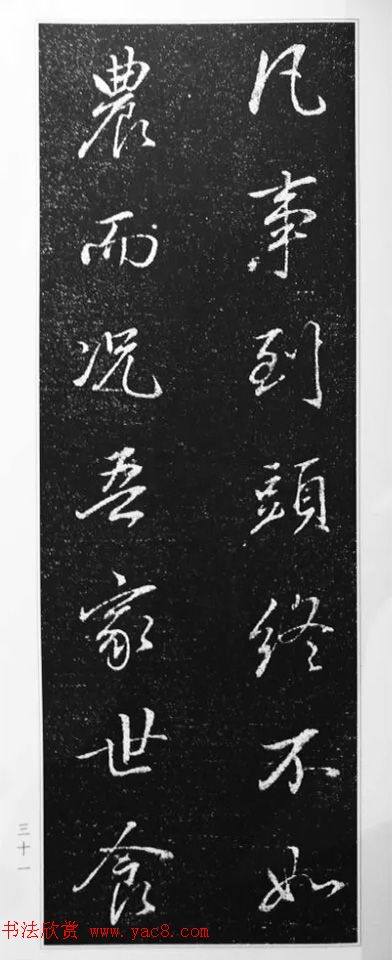 凡事到頭終不如
農而況吾家世食
三十一
书法欣赏 www.yac8.com